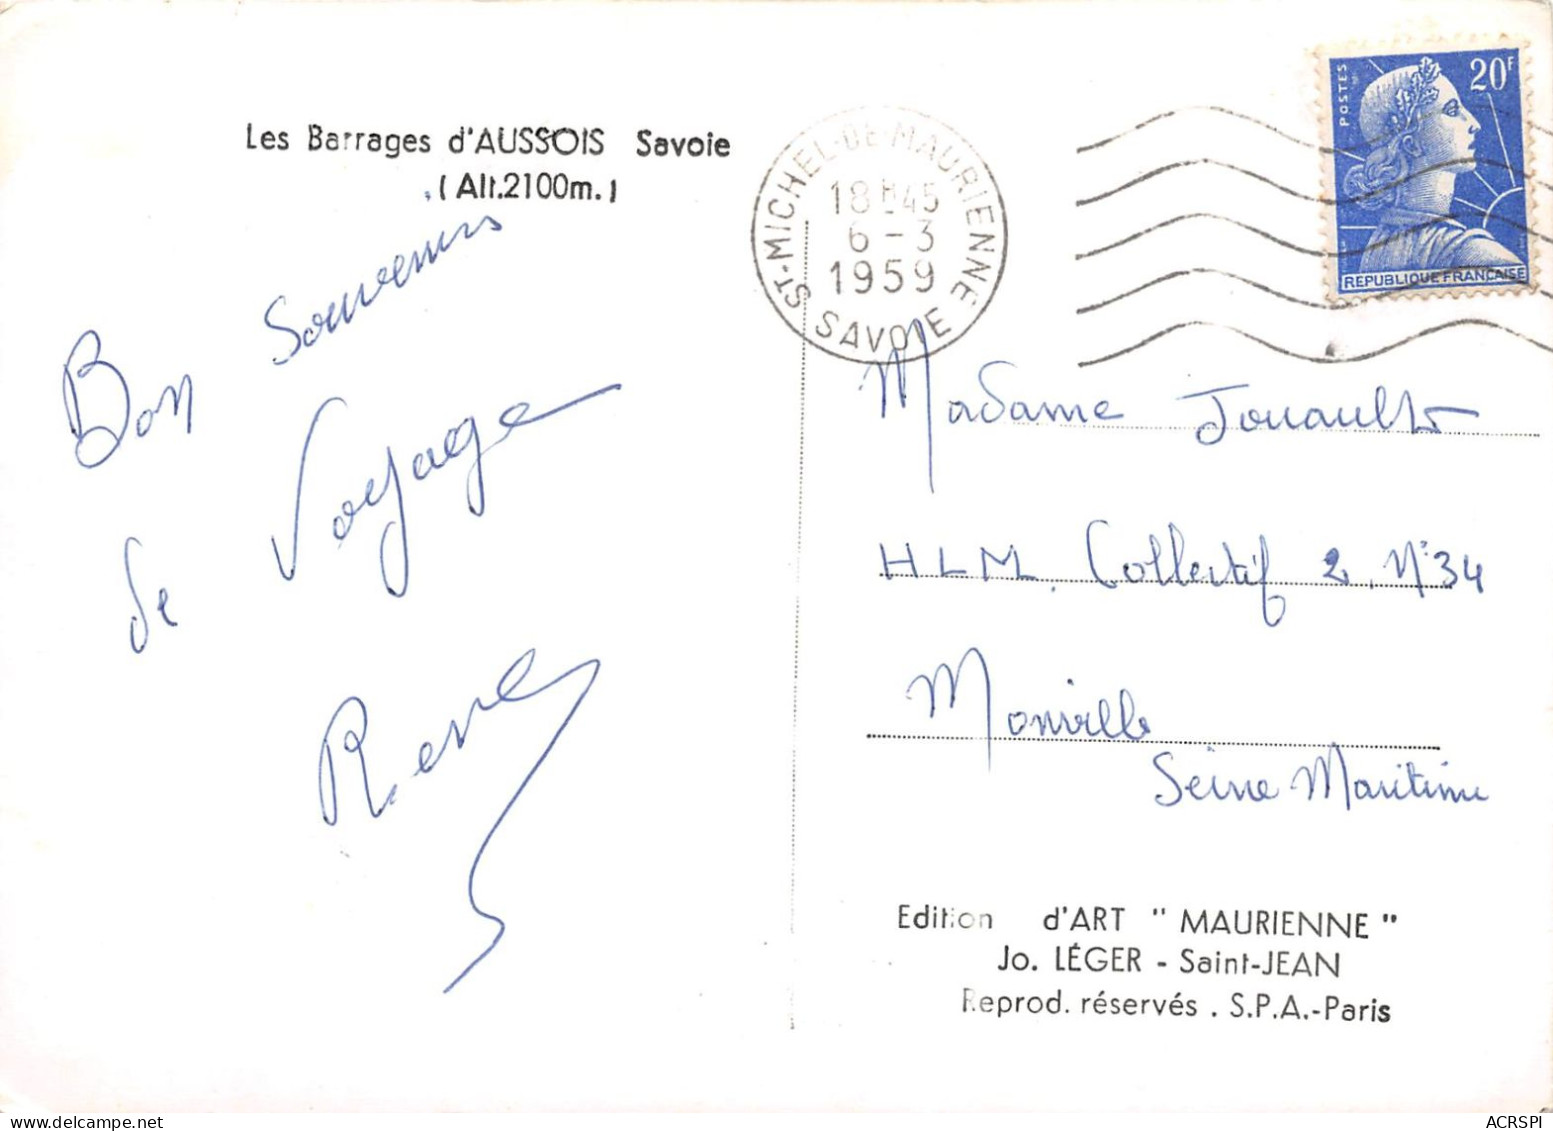 Les Barrages d'AUSSOIS Savoie
(Alt.2100m.)
Bon Souvenirs
de Voyage
René
ST-MICHEL-DE-MAURIENNE
18H45
6-3
1959
SAVOIE
POSTES
20F
REPUBLIQUE FRANÇAISE
Madame Jouault
HLM. Collectif 2, N°34
Monville
Seine Maritime
Edition d'ART " MAURIENNE "
Jo. LÉGER - Saint-JEAN
Reprod. réservés . S.P.A.-Paris
ACRSPI